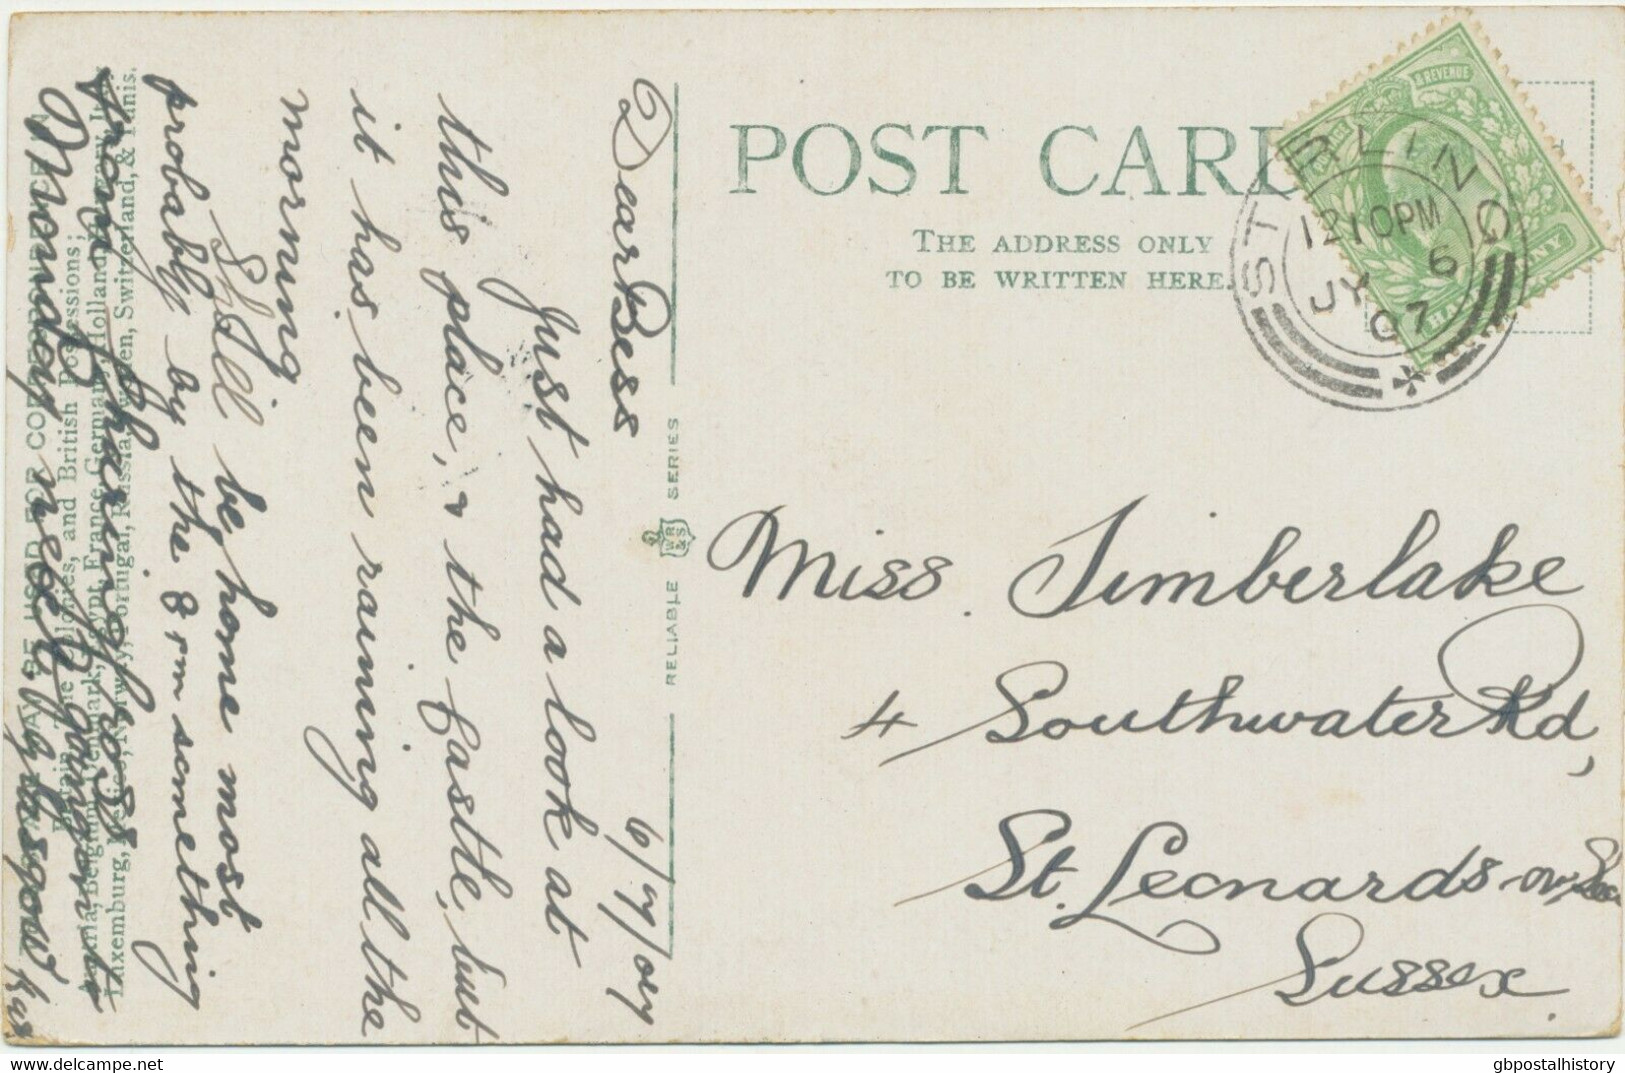 POST CARD
THE ADDRESS ONLY
TO BE WRITTEN HERE.
POSTAGE & REVENUE
STIRLING
1210PM
JY 6
07
Miss Timberlake
4 Southwater Rd,
St. Leonards-on-Sea
Sussex.
RELIABLE
WR
&S
SERIES
6/7/07
Dear Bess
Just had a look at
this place, & the Castle, but
it has been raining all the
morning
Shall be home most
probably by the 8 pm something
from Charing X
Monday next
Glasgow
MAY BE USED FOR CORRESPONDENCE
Britain, the Colonies, and British Possessions;
Belgium, Denmark, Egypt, France, Germany, Holland,
Luxemburg, Norway, Portugal, Russia, Sweden, Switzerland, & Tunis.
gbpostalhistory